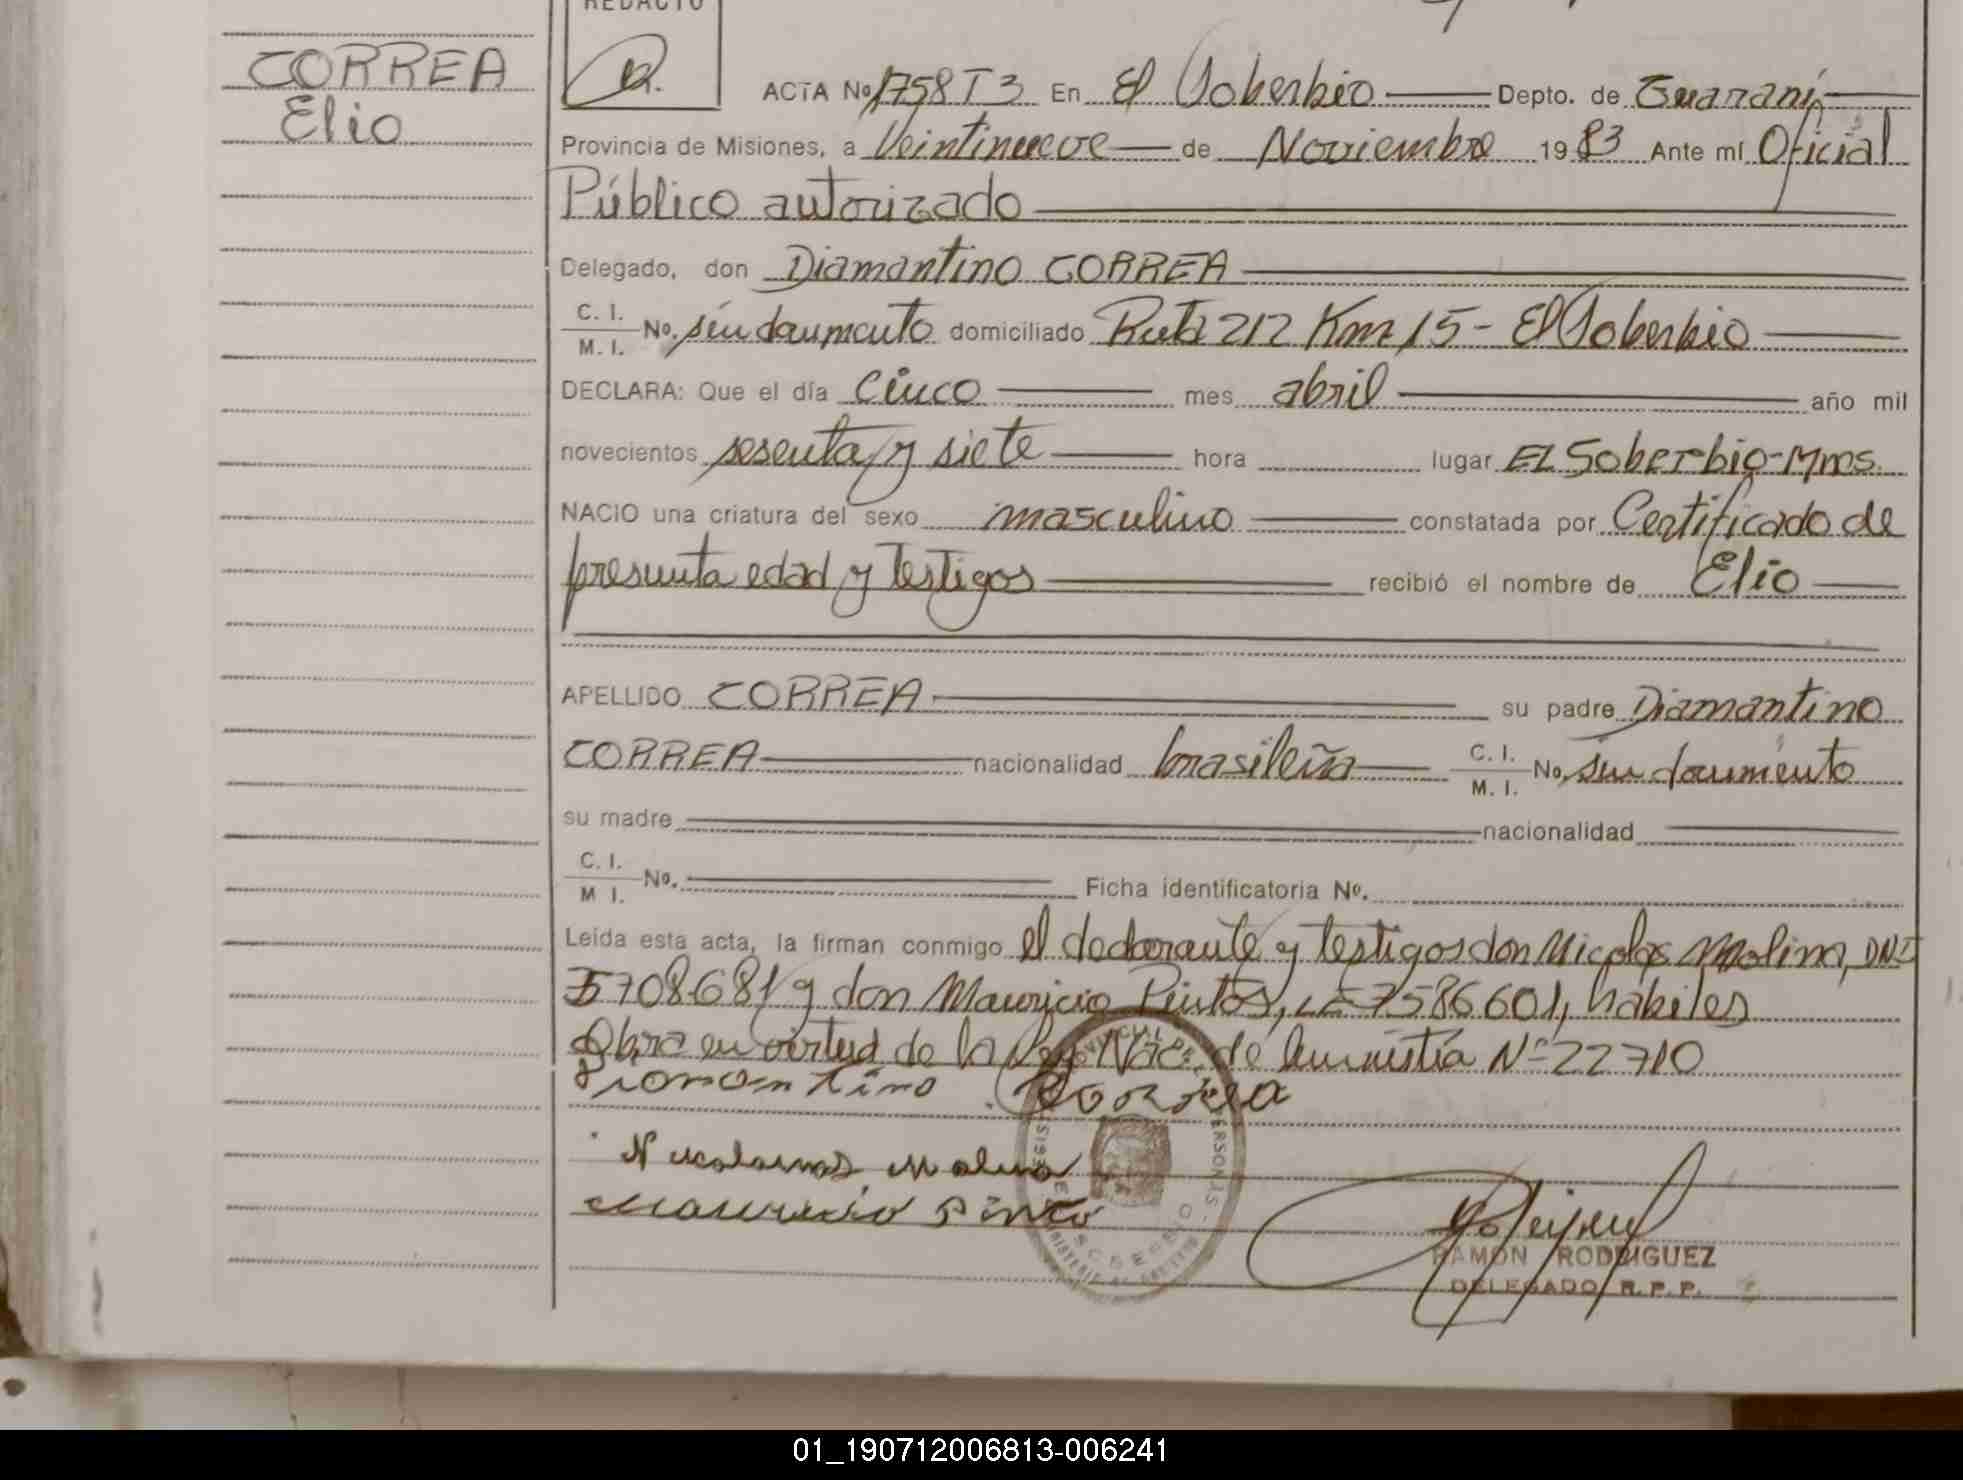 REDACTO
CORREA
Elio
ACTA Nº 1758 T 3 En El Soberbio Depto. de Guaraní
Provincia de Misiones, a Veintinueve de Noviembre 1983 Ante mí Oficial
Público autorizado
Delegado, don Diamantino CORREA
C. I.
M. I. Nº. sin documento domiciliado Ruta 212 Km 15 - El Soberbio
DECLARA: Que el día cinco mes abril año mil
novecientos sesenta y siete hora lugar EL Soberbio-Mnes.
NACIO una criatura del sexo masculino constatada por Certificado de
presunta edad y testigos recibió el nombre de Elio
APELLIDO CORREA su padre Diamantino
CORREA nacionalidad brasileña C. I. M. I. No. sin documento
su madre nacionalidad
C. I.
M I. Nº. Ficha identificatoria Nº.
Leída esta acta, la firman conmigo el declarante y testigos don Nicolas Molina, DNI
5708681 y don Mauricio Pintos, LE 7586601, hábiles
Obra en virtud de la Ley Nac. de Amnistía Nº 22710
Diamantino Correa
Molina
Mauricio Pinto
RAMON RODRIGUEZ
DELEGADO R. P. P.
01_190712006813-006241